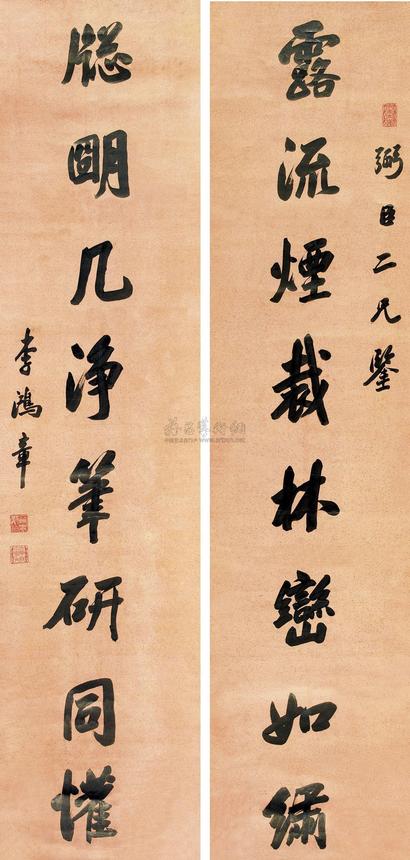 弼臣二兄鑒
露流煙裁林巒如繡
牕朙几淨筆研同懽
李鴻章